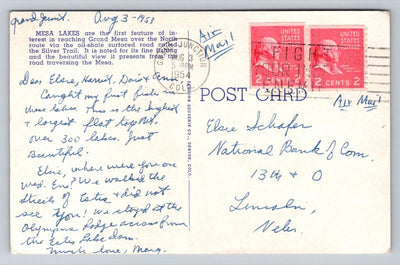 Grand Junct. Aug 3 - 1953
MESA LAKES are the first feature of in-
terest in reaching Grand Mesa over the North
route via the oil-shale surfaced road called
the Silver Trail. It is noted for its fine fishing
and the beautiful view it presents from the
road traversing the Mesa.
Dear Elsie, Harriet, Doris &
Caught my first fish in
lakes. This is the highest
& largest flat top Mt.
over 300 lakes. Just
Beautiful.
Elsie, where were you on
Wed. Eve? We walked the
Streets of Estes & did not
see you! We stayed at the
Olympus Lodge across from
the Estes Lake Dam.
Much love, Marg.
GRAND JUNCTION
AUG 3
PM
1954
COLO.
Air
Mail
UNITED STATES POSTAGE
2 CENTS 2
UNITED STATES POSTAGE
2 CENTS 2
FIGHT
POST CARD
Air Mail
Elsie Schafer
National Bank of Com.
13th & O
Lincoln,
Nebr.